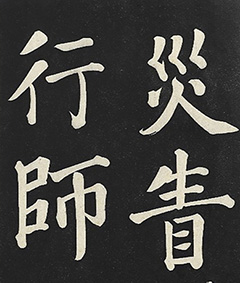 災眚
行師